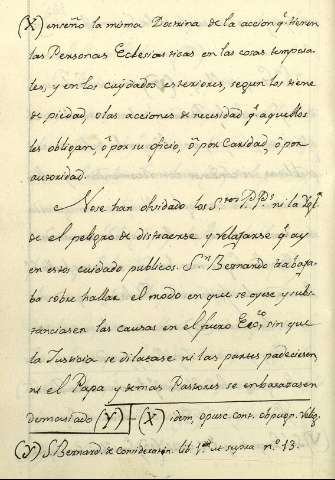 (X) enseño la misma Doctrina de la accion q.e tienen
las Personas Eclesiasticas en las cosas tempora-
les, y en los cuydados esteriores, segun los tiene
de piedad, o las acciones de necesidad q.e aquellos
les obligan, ô por su oficio, ô por Caridad, ô por
autoridad.
No se han olvidado los S.tos P.P.s ni la
de el peligro de distraerse y relajarse q.e ay
en estos cuidado publicos. S.n Bernardo trabaja-
ba sobre hallar el modo en que se oyese y subs-
tanciasen las causas en el fuero Ecc.co, sin que
la Justicia se dilatase ni las partes padeciesen
ni el Papa y demas Pastores se enbarazasen
demasiado (Y) - (X) idem, opusc. cont. obpugn. Relig.
(Y) S. Bernard. de Consideration. lib. 1.º ut supra n.º 13.